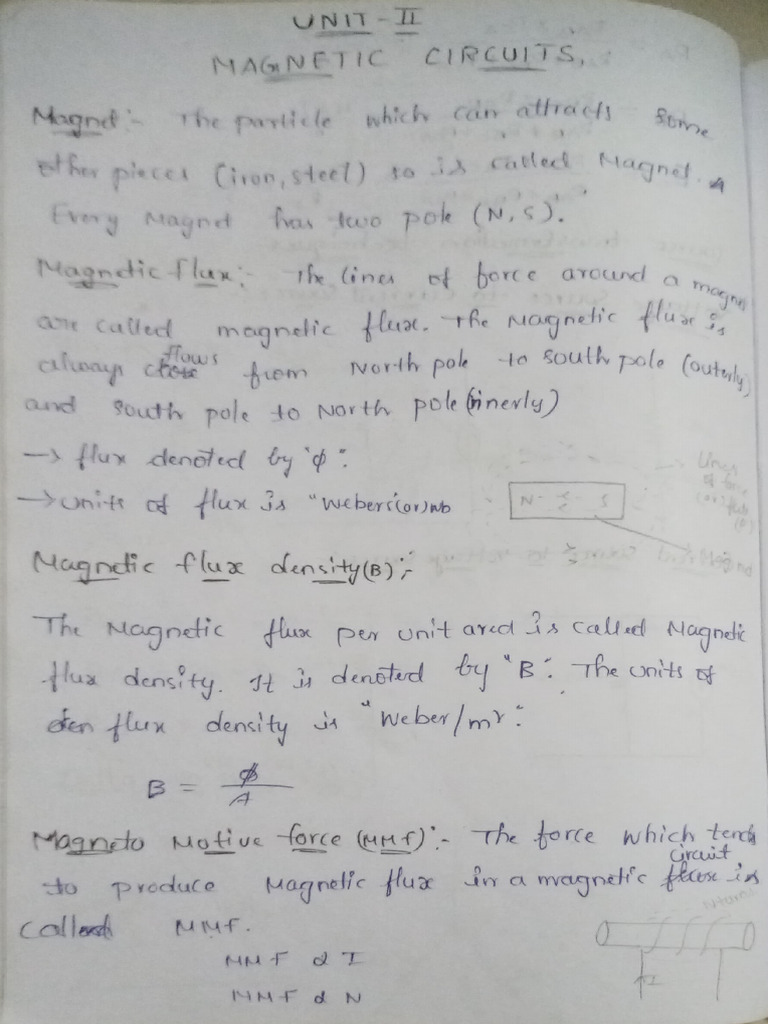 UNIT-II
MAGNETIC CIRCUITS,
Magnet:- The particle which can attracts some
other pieces (iron, steel) so is called Magnet.
Every Magnet has two pole (N,S).
Magnetic flux:- The lines of force around a magnet
are called magnetic flux. The Magnetic flux is
always flows from North pole to south pole (outerly)
and south pole to North pole (innerly)
→ flux denoted by "ϕ".
→ units of flux is "Webers(or)wb
N S
Lines of force (or) flux (ϕ)
Magnetic flux density(B):-
The Magnetic flux per unit area is called Magnetic
flux density. It is denoted by "B". The units of
flux density is "Weber/m²".
B = ϕ/A
Magneto Motive force (MMF):- The force which tends
to produce Magnetic flux in a magnetic circuit is
called MMF.
MMF α I
MMF α N
I